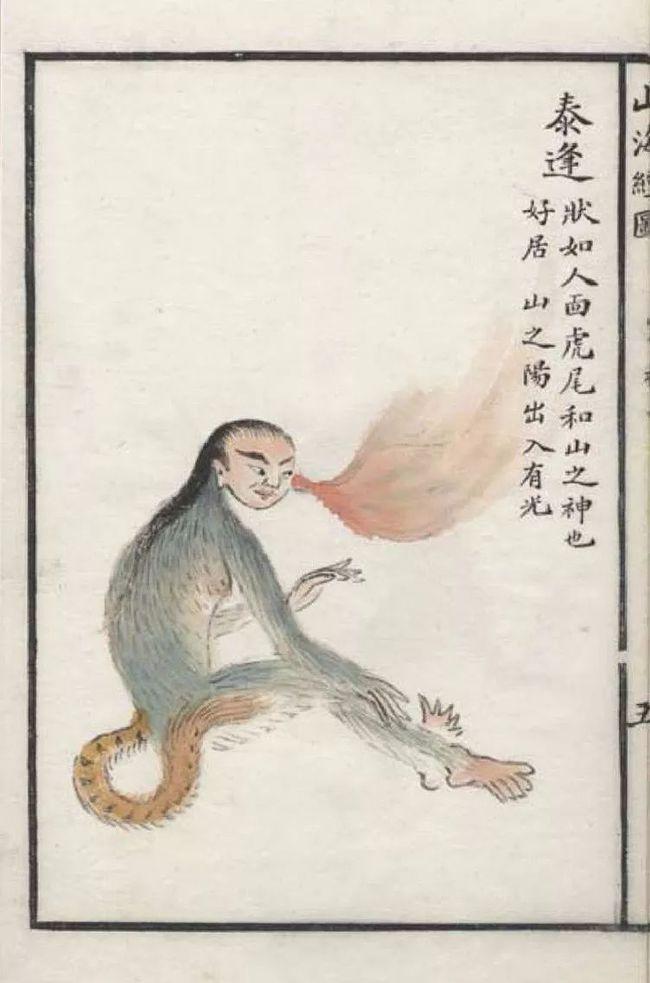 山海經圖
泰逢
狀如人面虎尾和山之神也
好居 山之陽出入有光
五